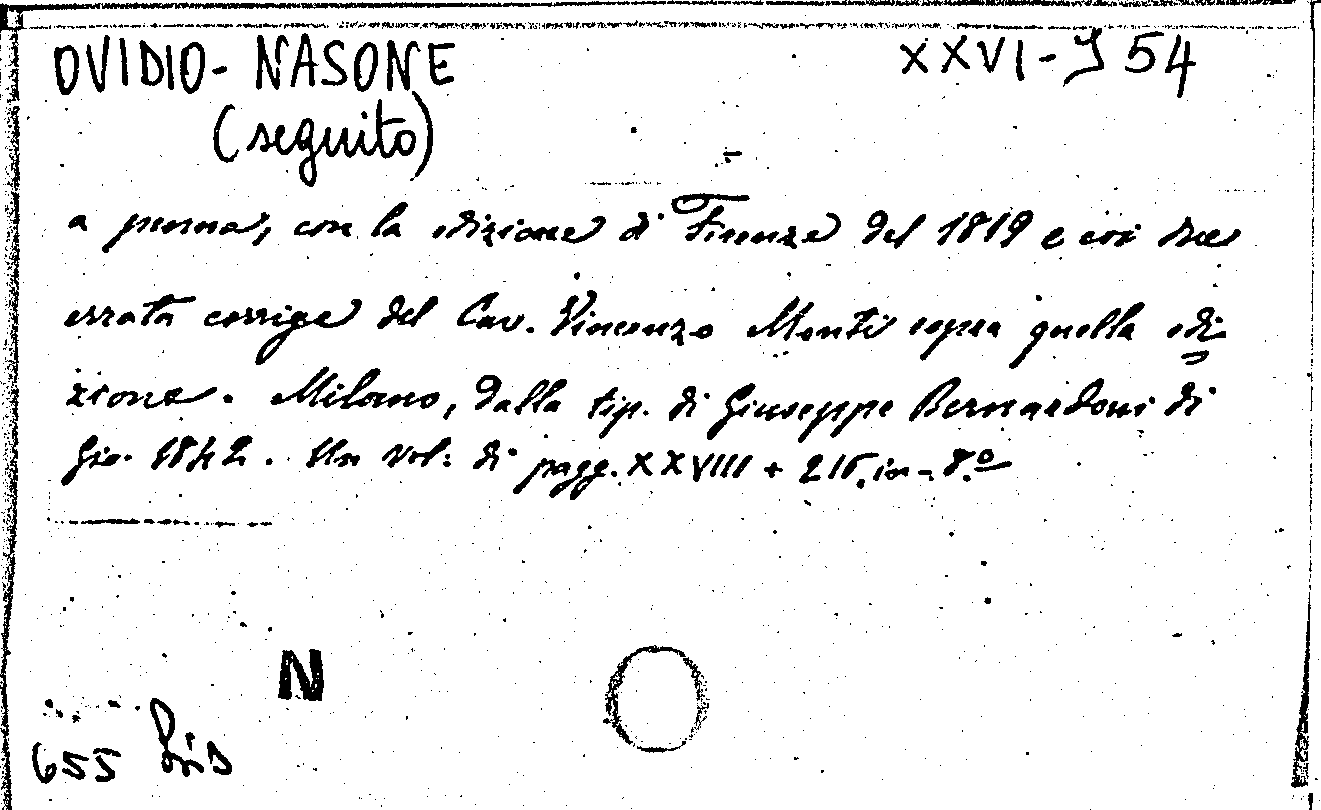 OVIDIO - NASONE XXVI - J 54
(seguito)
a penna, con la edizione di Firenze del 1819 e coi due
errata corrige del Cav. Vincenzo Monti sopra quella edi
zione. Milano, dalla tip. di Giuseppe Bernardoni di
Gio. 1842. Un vol: di pagg. XXVIII + 216. in - 8.º
N
655 bis